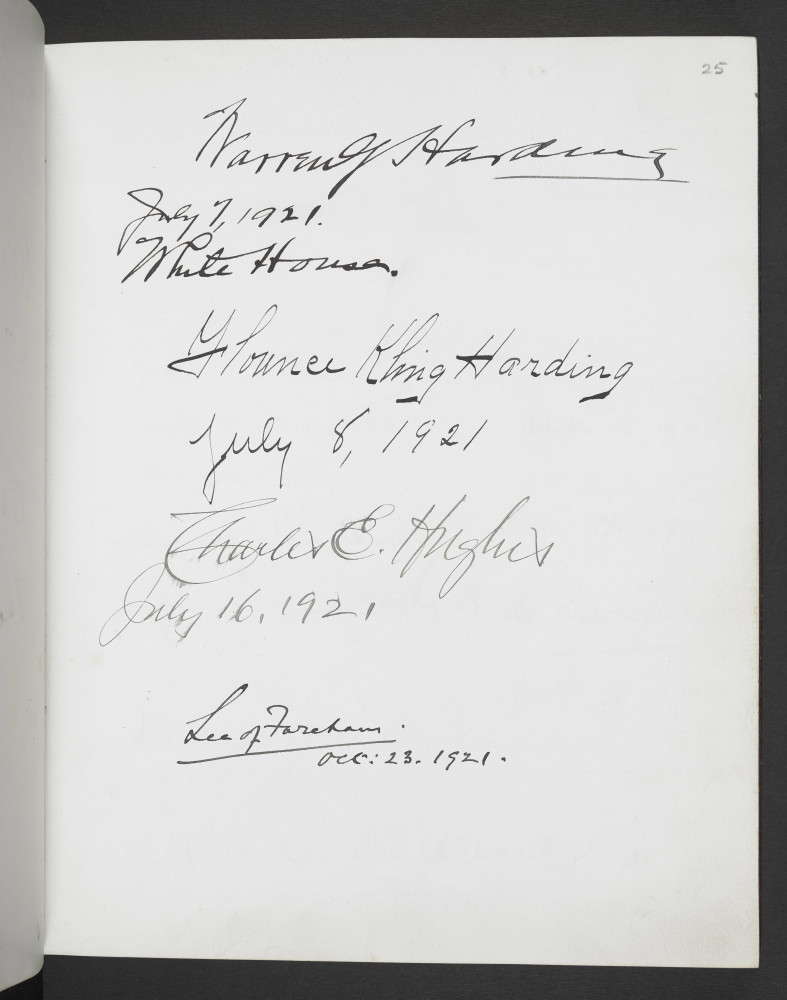 25
Warren G Harding
July 7, 1921.
White House.
Florence Kling Harding
July 8, 1921
Charles E. Hughes
July 16, 1921
Lee of Fareham.
Oct: 23. 1921.